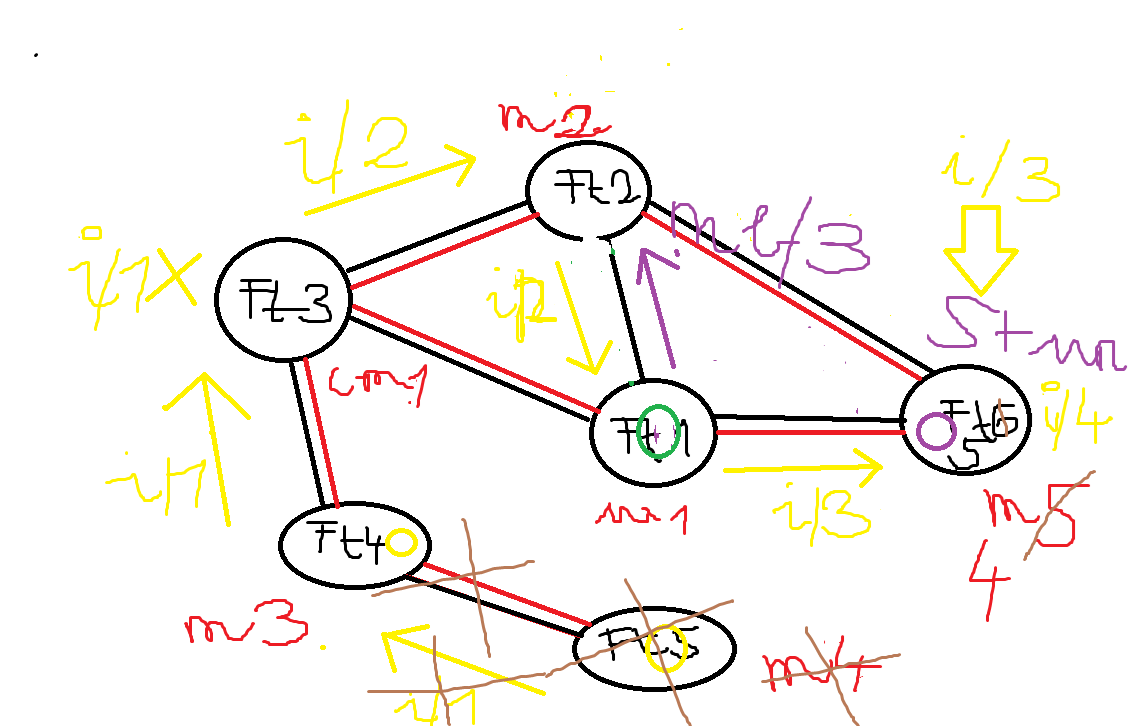 m2
i/2
Ft2
i/3
mt/3
i/1X
Ft3
i/2
St un
cm1
Ft1
Ft5
i/4
i/1
i/3
m1
m5
4
Ft4
m3
Ft5
m4
i/1